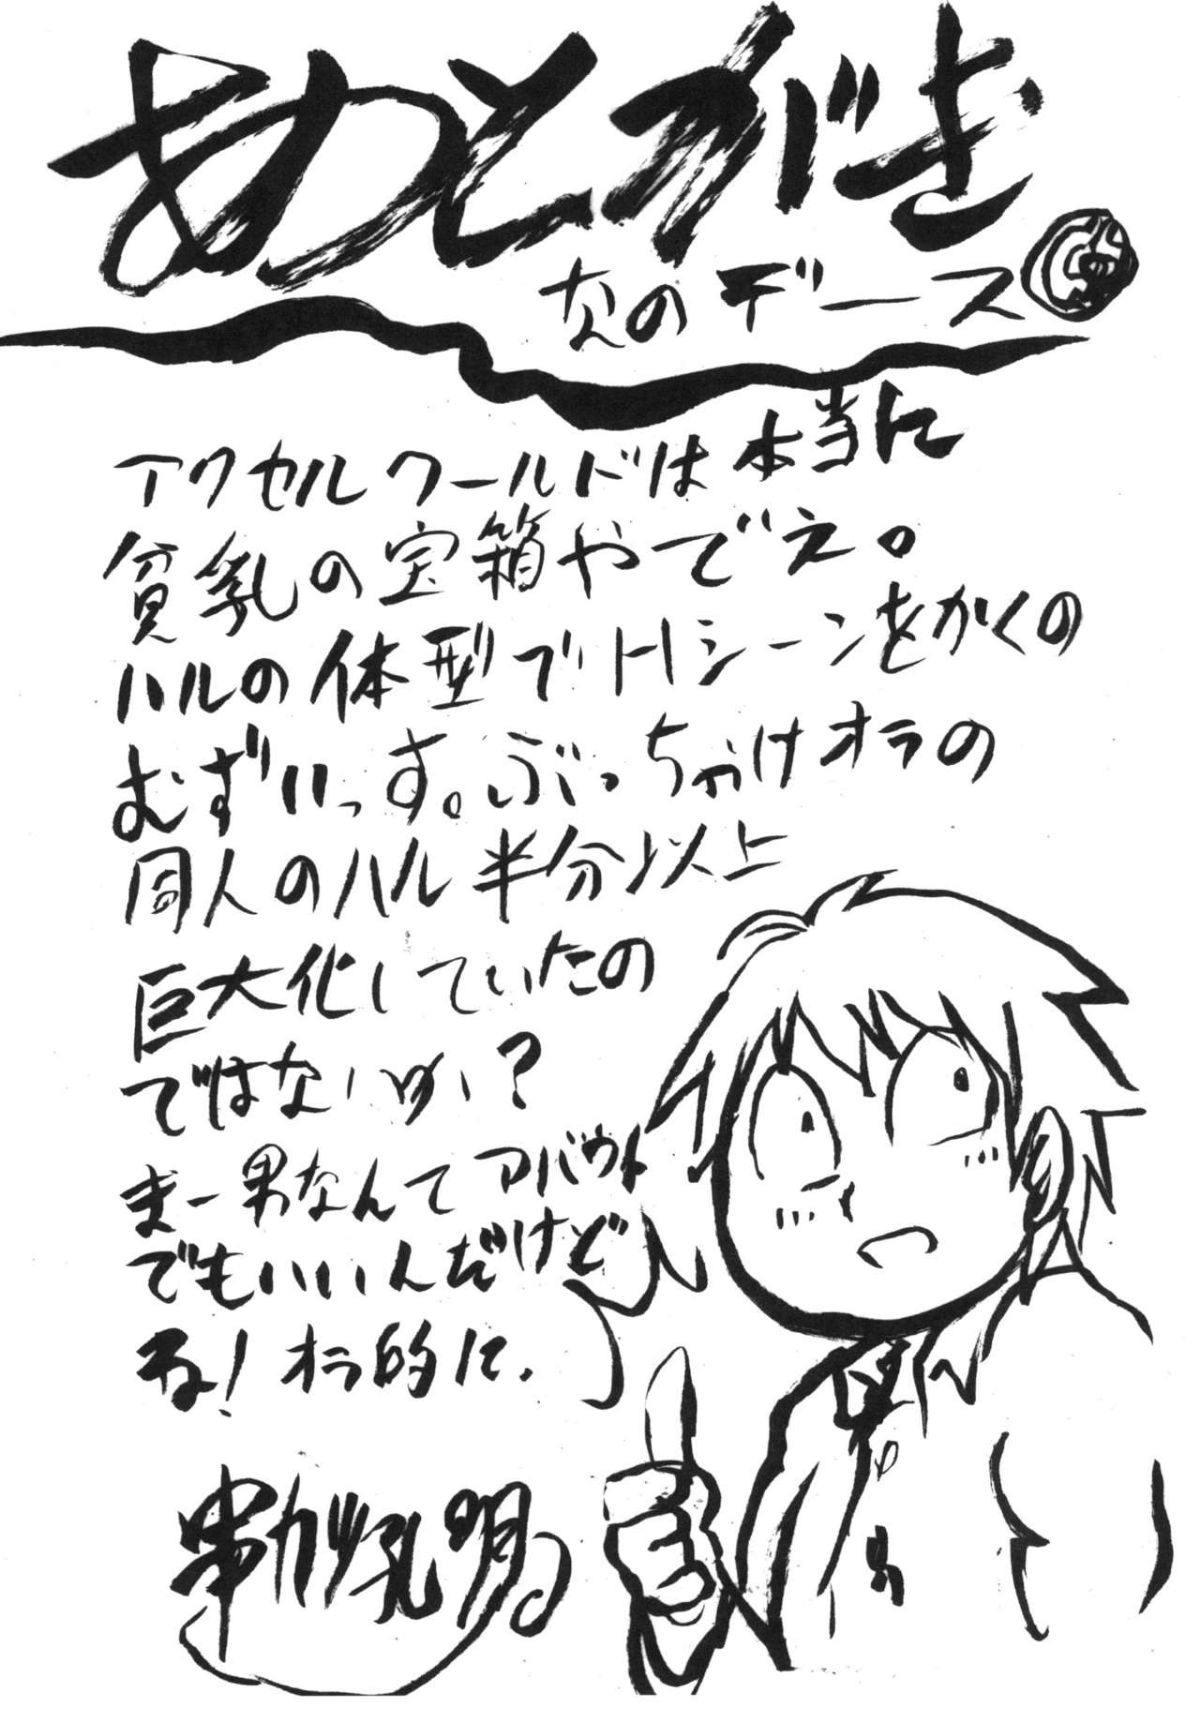 あとがき
なのデース
アクセルワールドは本当に
貧乳の宝箱やでえ。
ハルの体型でHシーンをかくの
むずいっす。ぶっちゃけオラの
同人のハル半分以上
巨大化していたの
ではないかい?
まー男なんてアバウト
でもいいんだけど
ね!オラ的に、
串カツ孔明